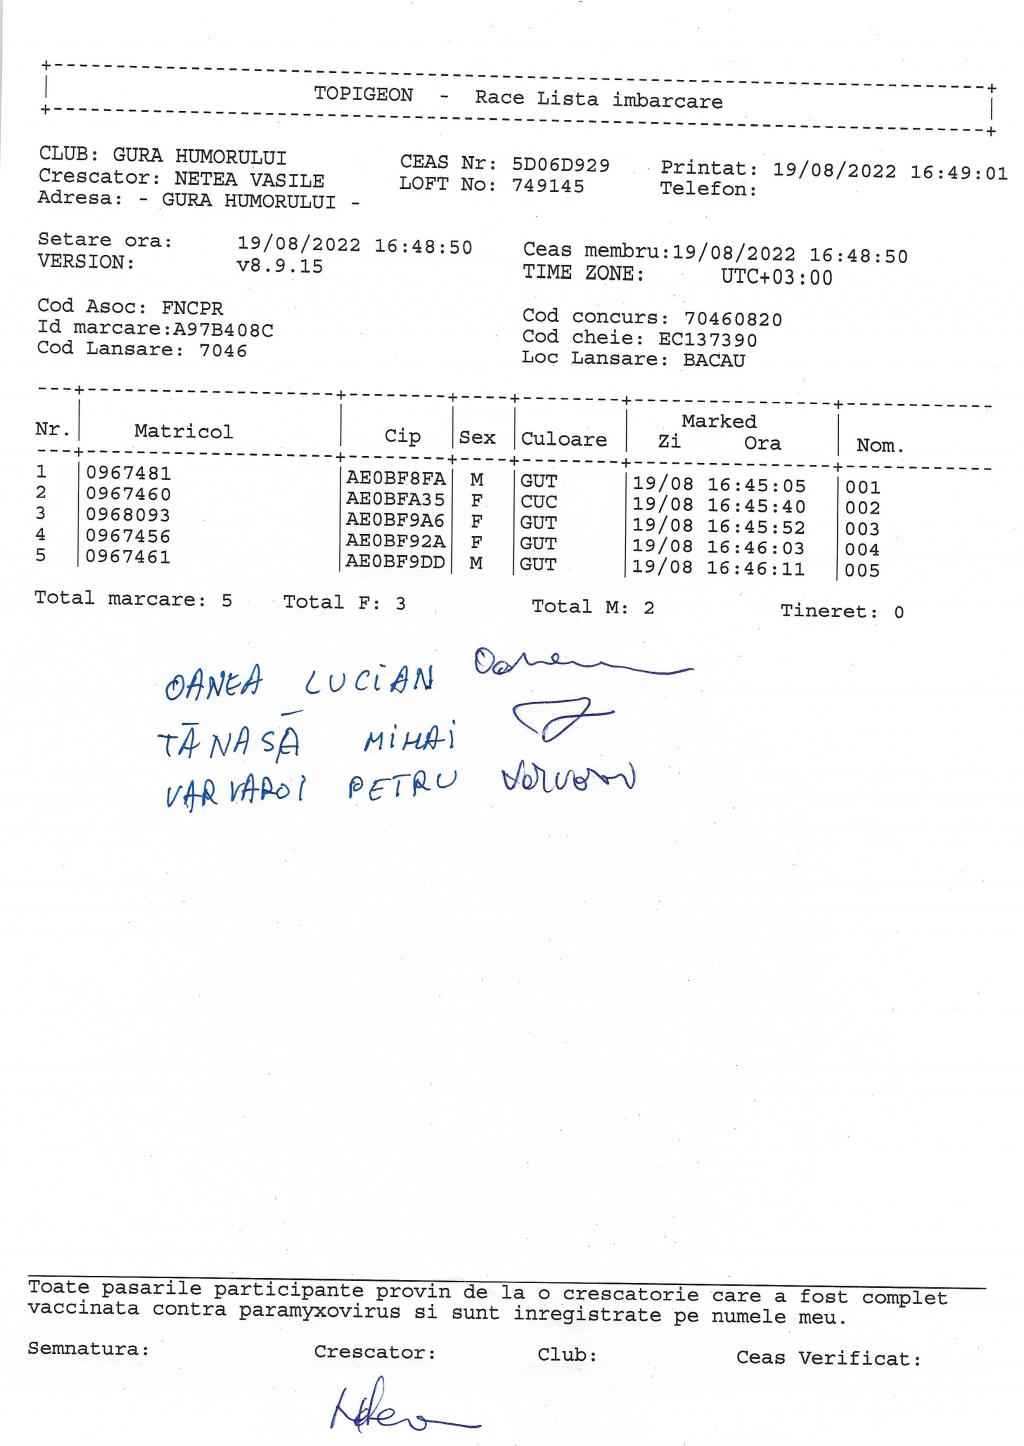 TOPIGEON - Race Lista imbarcare
CLUB: GURA HUMORULUI CEAS Nr: 5D06D929 Printat: 19/08/2022 16:49:01
Crescator: NETEA VASILE LOFT No: 749145 Telefon:
Adresa: - GURA HUMORULUI -
Setare ora: 19/08/2022 16:48:50 Ceas membru:19/08/2022 16:48:50
VERSION: v8.9.15 TIME ZONE: UTC+03:00
Cod Asoc: FNCPR Cod concurs: 70460820
Id marcare:A97B408C Cod cheie: EC137390
Cod Lansare: 7046 Loc Lansare: BACAU
Marked
Nr. Matricol Cip Sex Culoare Zi Ora Nom.
1 0967481 AE0BF8FA M GUT 19/08 16:45:05 001
2 0967460 AE0BFA35 F CUC 19/08 16:45:40 002
3 0968093 AE0BF9A6 F GUT 19/08 16:45:52 003
4 0967456 AE0BF92A F GUT 19/08 16:46:03 004
5 0967461 AE0BF9DD M GUT 19/08 16:46:11 005
Total marcare: 5 Total F: 3 Total M: 2 Tineret: 0
OANEA LUCIAN
TĂNASĂ MIHAI
VARVAROI PETRU
Toate pasarile participante provin de la o crescatorie care a fost complet
vaccinata contra paramyxovirus si sunt inregistrate pe numele meu.
Semnatura: Crescator: Club: Ceas Verificat: